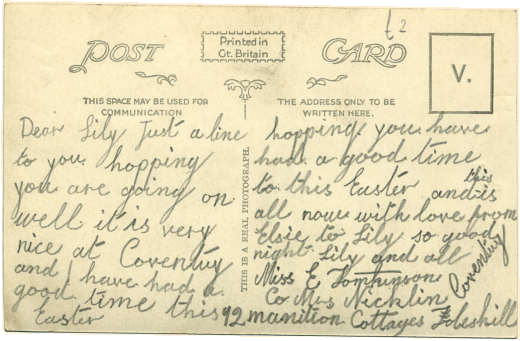 £2
POST CARD
Printed in
Gt. Britain
V.
THIS SPACE MAY BE USED FOR
COMMUNICATION
THE ADDRESS ONLY TO BE
WRITTEN HERE.
THIS IS A REAL PHOTOGRAPH.
Dear Lily Just a line
to you hopping
you are going on
well it is very
nice at Coventry
and I have had a
good time this
Easter
hopping you have
had a good time
to this Easter and this is
all now with love from
Elsie to Lily so good
night Lily and all
Miss E Tomkinson
Co Mrs Nicklin
92 manition Cottages
Coventry